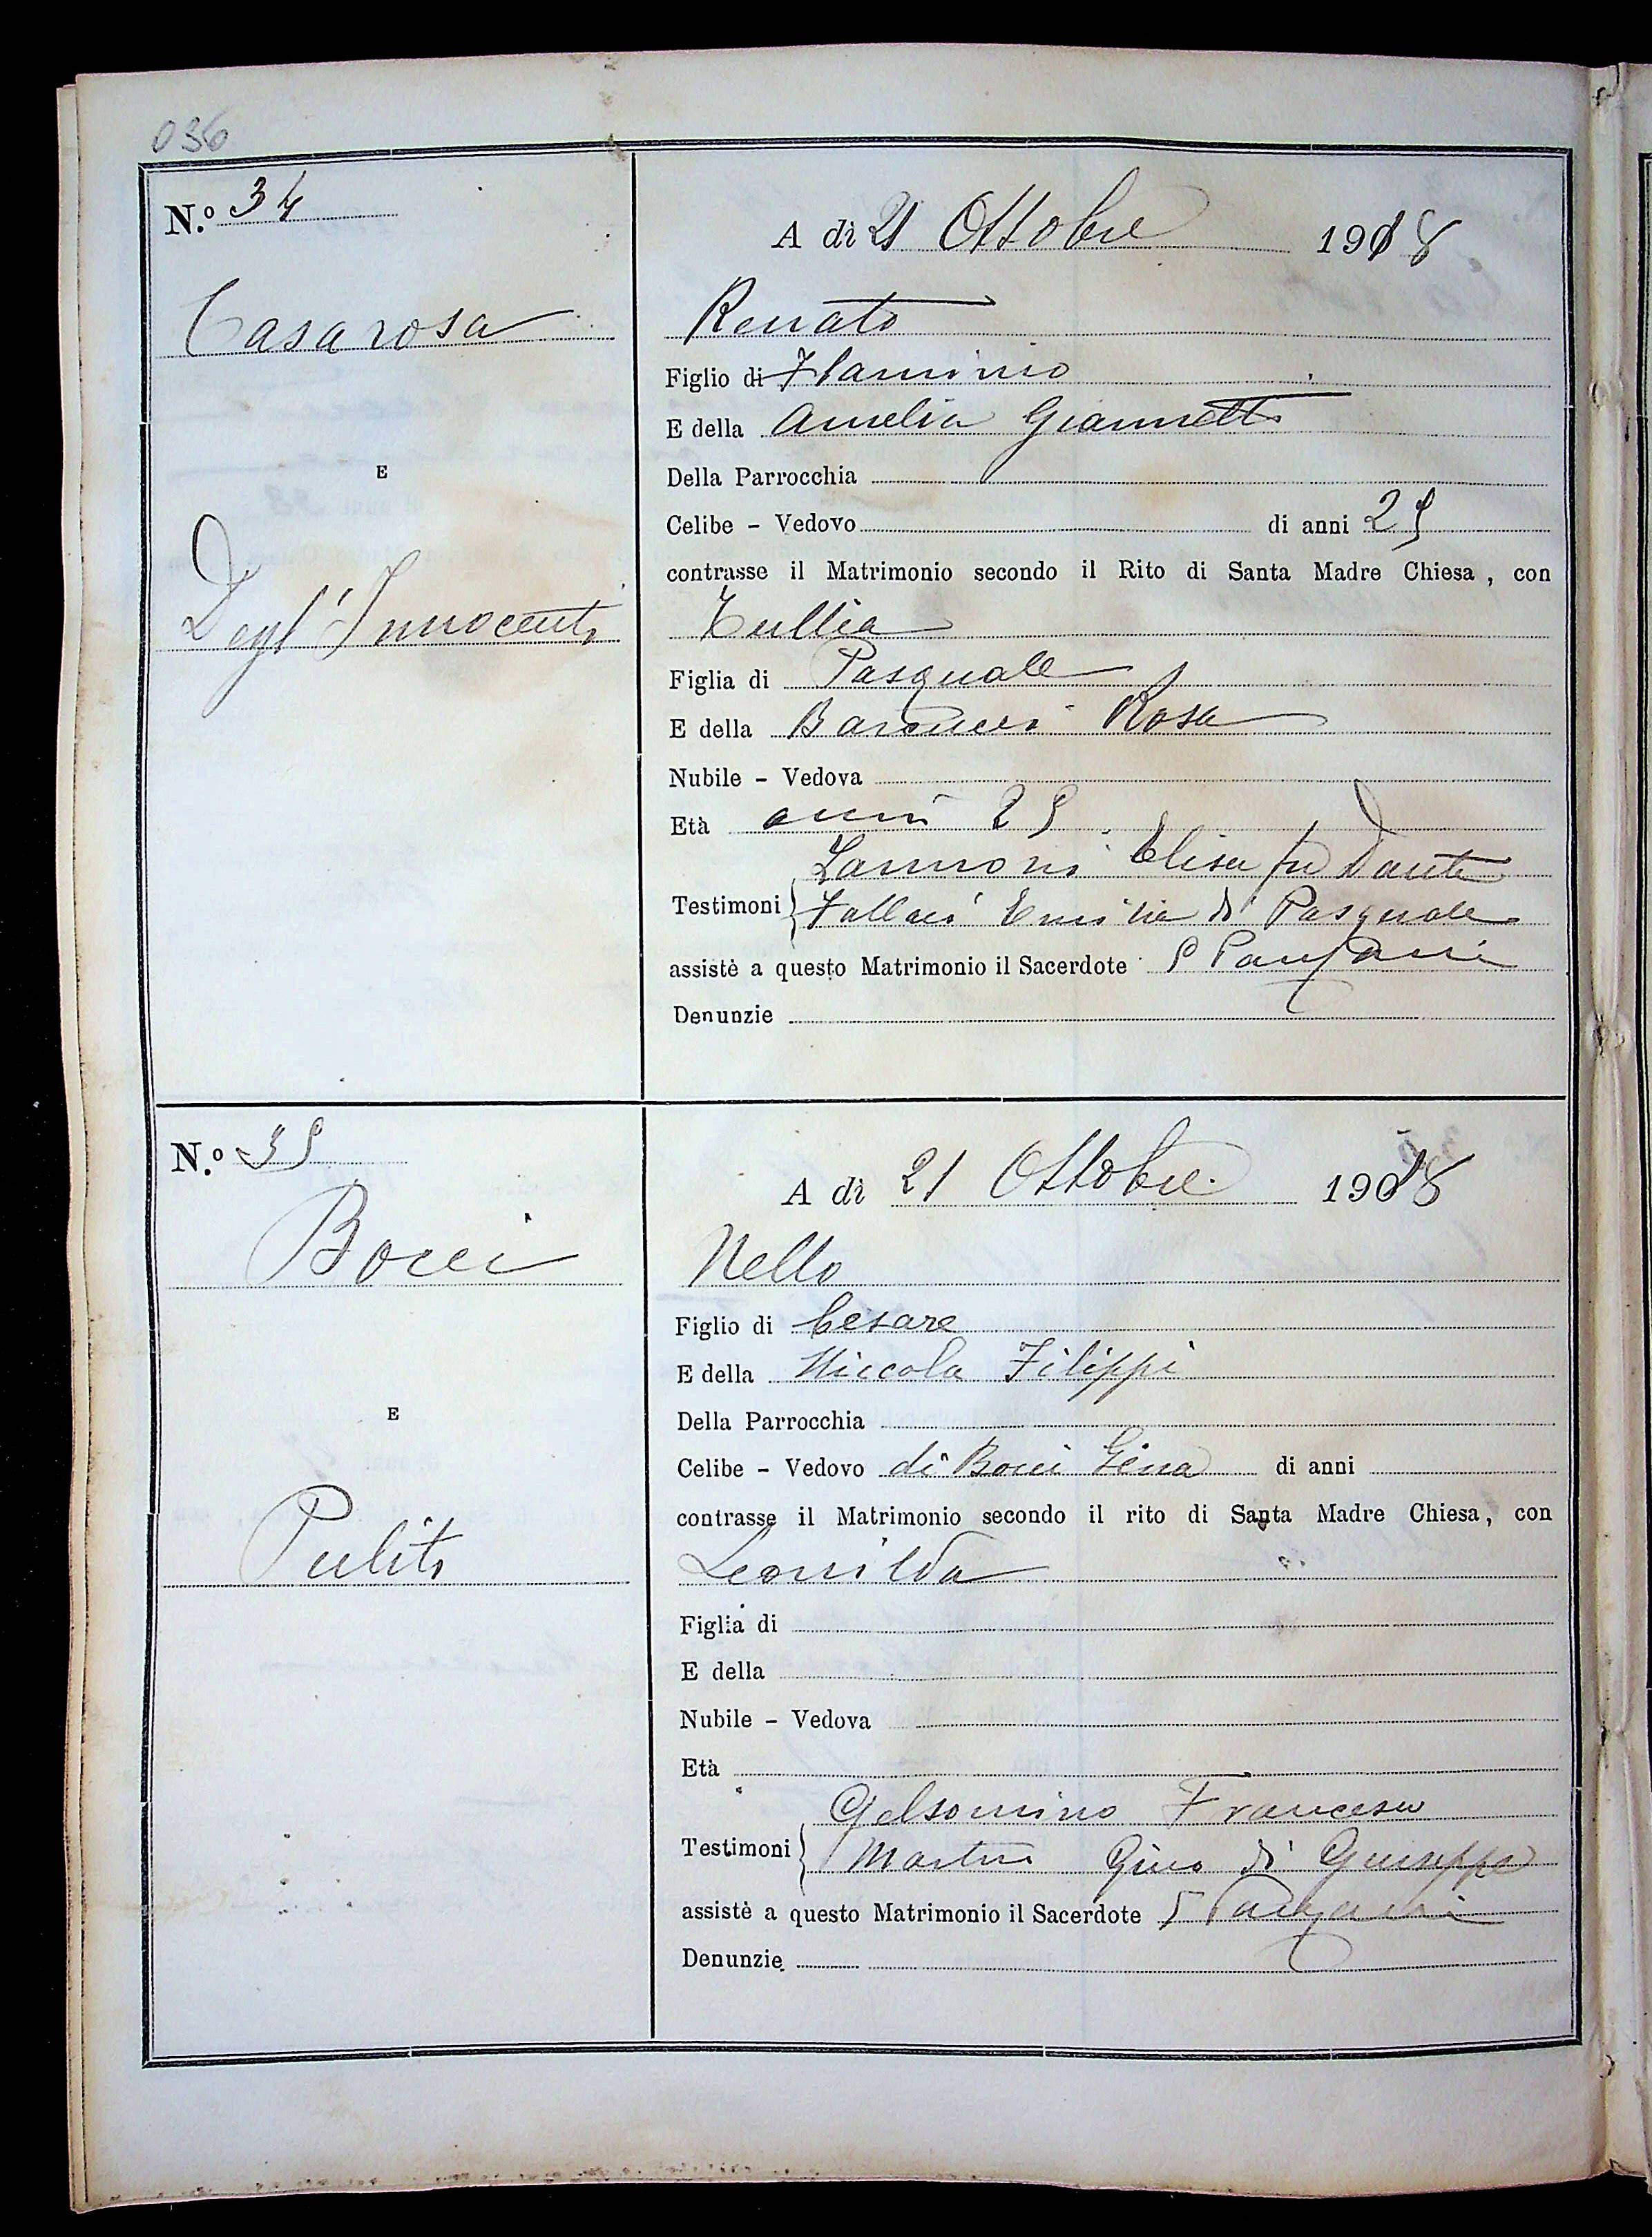 036
N.º 34
A dì 21 Ottobre 1918
Casarosa
Renato
Figlio di Flaminio
E della Amelia Giannetti
Della Parrocchia
E
Celibe - Vedovo di anni 25
contrasse il Matrimonio secondo il Rito di Santa Madre Chiesa, con
Degl'Innocenti
Tullia
Figlia di Pasquale
E della Barducci Rosa
Nubile - Vedova
Età anni 25
Zannoni Elisa fu Dante
Testimoni Fallaci Emilia di Pasquale
assistè a questo Matrimonio il Sacerdote P Panzani
Denunzie
N.º 35
A dì 21 Ottobre 1918
Bocci
Nello
Figlio di Cesare
E della Niccola Filippi
E
Della Parrocchia
Celibe - Vedovo di Bocci Gina di anni
contrasse il Matrimonio secondo il rito di Santa Madre Chiesa, con
Puliti
Leonilda
Figlia di
E della
Nubile - Vedova
Età
Gelsomino Francesco
Testimoni Martini Gino di Giuseppe
assistè a questo Matrimonio il Sacerdote P Panzani
Denunzie